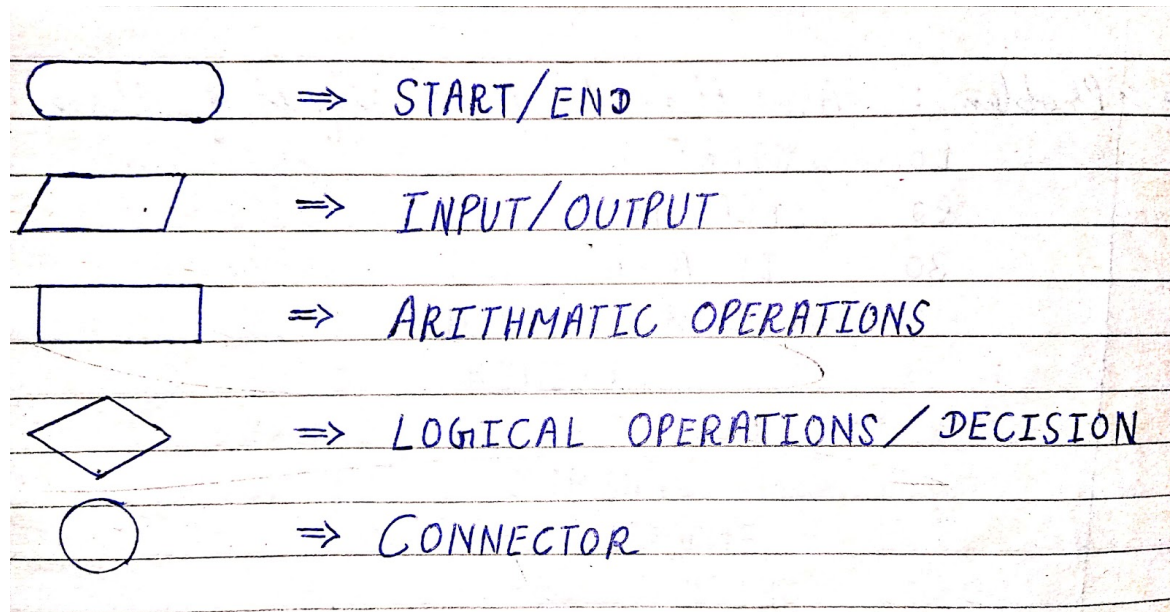 ⇒ START/END
⇒ INPUT/OUTPUT
⇒ ARITHMATIC OPERATIONS
⇒ LOGICAL OPERATIONS/DECISION
⇒ CONNECTOR